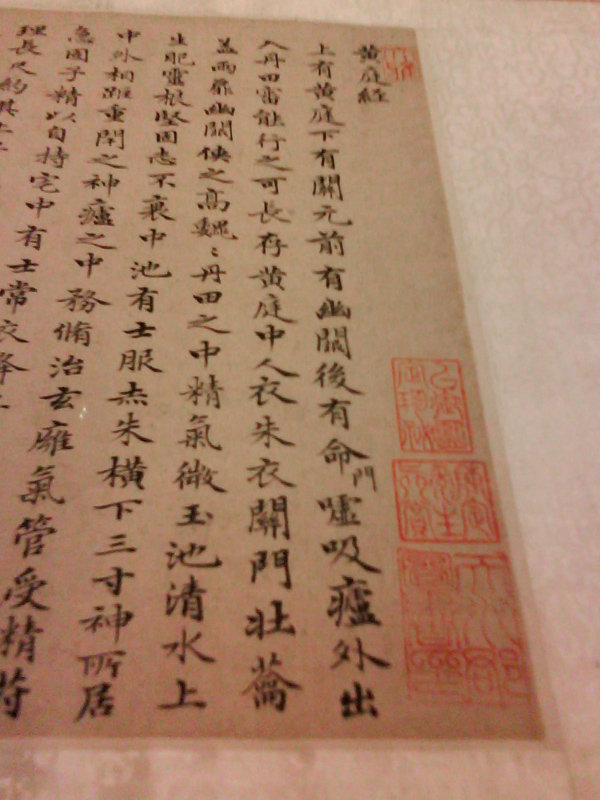 黄庭經
上有黄庭下有關元前有幽闕後有命門噓吸廬外出
入丹田審能行之可長存黄庭中人衣朱衣關門壯蘥
盖兩扉幽闕俠之高魏〻丹田之中精氣微玉池清水上
生肥靈根堅固志不衰中池有士服赤朱橫下三寸神所居
中外相距重閇之神廬之中務脩治玄廱氣管受精符
急固子精以自持宅中有士常衣絳
理長尺約其上